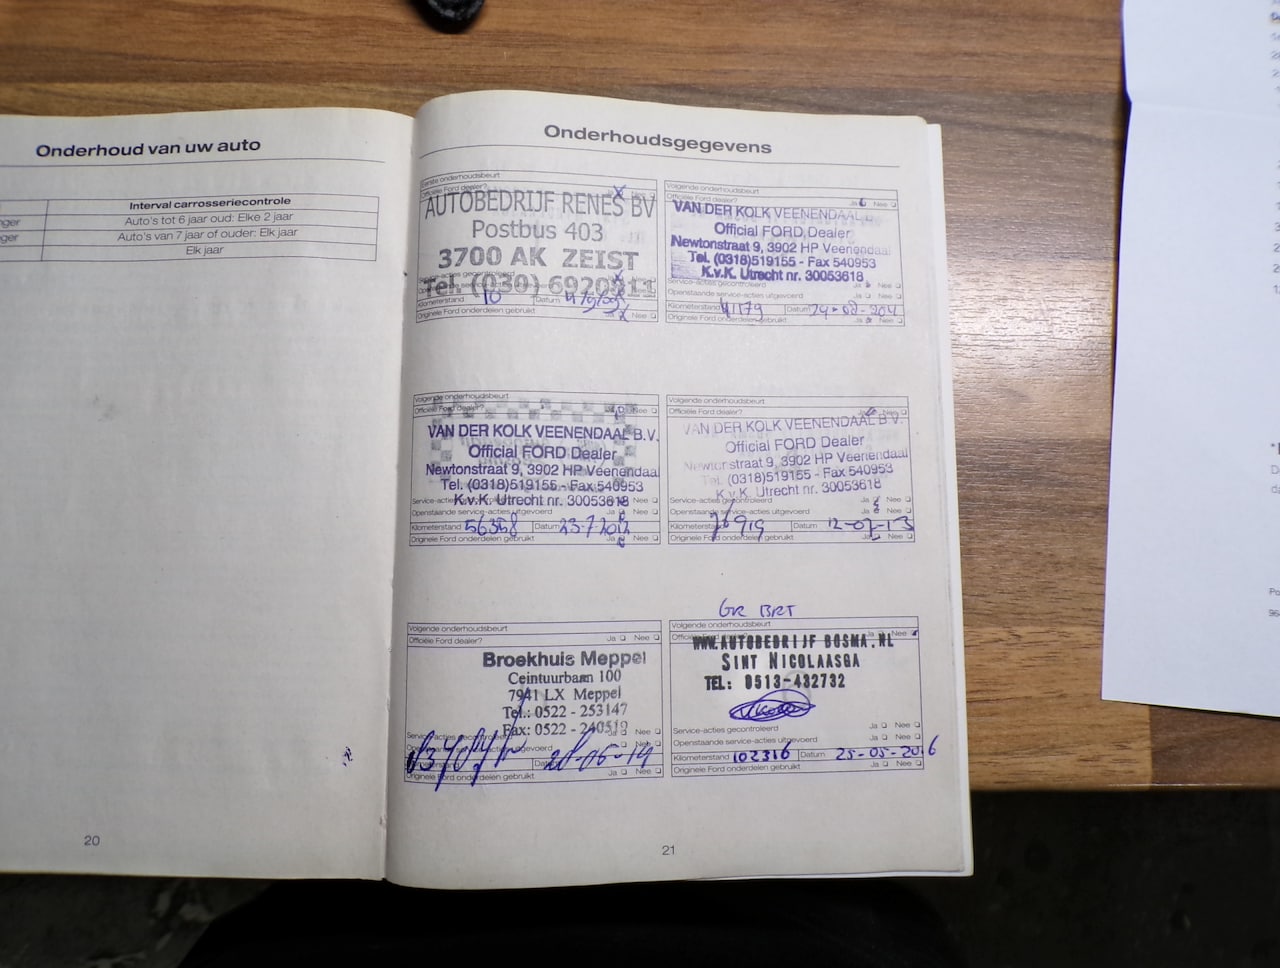 Onderhoud van uw auto
Interval carrosseriecontrole
nger Auto's tot 6 jaar oud: Elke 2 jaar
nger Auto's van 7 jaar of ouder: Elk jaar
Elk jaar
20
Onderhoudsgegevens
Eerste onderhoudsbeurt
Officiële Ford dealer? Ja Nee
AUTOBEDRIJF RENES BV
Postbus 403
3700 AK ZEIST
Tel. (030) 6920911
Service-acties gecontroleerd
Kilometerstand 10 Datum
Originele Ford onderdelen gebruikt Ja Nee
Volgende onderhoudsbeurt
Officiële Ford dealer? Ja Nee
VAN DER KOLK VEENENDAAL
Official FORD Dealer
Newtonstraat 9, 3902 HP Veenendaal
Tel. (0318)519155 - Fax 540953
K.v.K. Utrecht nr. 30053618
Service-acties gecontroleerd Ja Nee
Openstaande service-acties uitgevoerd Ja Nee
Kilometerstand 41179 Datum
Originele Ford onderdelen gebruikt Ja Nee
Volgende onderhoudsbeurt
Officiële Ford dealer? Nee
VAN DER KOLK VEENENDAAL B.V.
Official FORD Dealer
Newtonstraat 9, 3902 HP Veenendaal
Tel. (0318)519155 - Fax 540953
K.v.K. Utrecht nr. 30053618
Service-acties Nee
Openstaande service-acties uitgevoerd Ja Nee
Kilometerstand 56358 Datum 23-7-2012
Originele Ford onderdelen gebruikt Ja Nee
Volgende onderhoudsbeurt
Officiële Ford dealer? Nee
VAN DER KOLK VEENENDAAL B.V.
Official FORD Dealer
Newtonstraat 9, 3902 HP Veenendaal
Tel. (0318)519155 - Fax 540953
K.v.K. Utrecht nr. 30053618
Service-acties gecontroleerd Ja Nee
Openstaande service-acties uitgevoerd Ja Nee
Kilometerstand 76919 Datum 12-07-13
Originele Ford onderdelen gebruikt Ja Nee
Volgende onderhoudsbeurt
Officiële Ford dealer? Ja Nee
Broekhuis Meppel
Ceintuurbaan 100
7941 LX Meppel
Tel.: 0522 - 253147
Fax: 0522 - 240519
Originele Ford onderdelen gebruikt Ja Nee
GR BRT
Volgende onderhoudsbeurt
Ja Nee
WWW.AUTOBEDRIJF BOSMA.NL
SINT NICOLAASGA
TEL: 0513-432732
Service-acties gecontroleerd Ja Nee
Openstaande service-acties uitgevoerd Ja Nee
Kilometerstand 102316 Datum 25-05-2016
Originele Ford onderdelen gebruikt Ja Nee
21